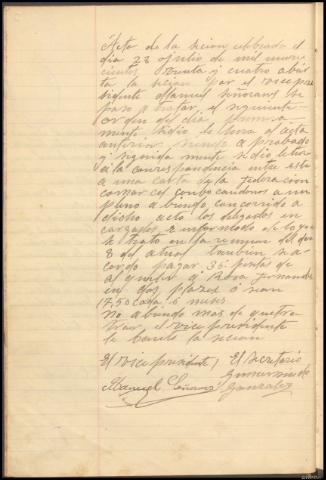 Acta de la sesion celebrada el
dia 22 Julio de mil nuove
cientos trenta y cuatro abier
ta la sesion por el vice pre
sidente Manuel señorans se
paso a tratar, el siguiente
orden del dia, primera
mente sidio letura al acta
anterior siendo aprobado
y siguida mente sedio letura
a la correspondencia entre esta
a una carta de la federacion
comarcal convocandonos a un
pleno abiendo concorrido a
dicho, acto los delegados en
cargados, a informado de lo que
se trato en la reunion del dia
8 del atual tambien sea
cordo pagar 35 pesetas de
alquiler a Rosa Fernandez
en dos plazos o sean
17,50 cada 6 meses
no abiendo mas de que tra
trar, el vice presidente
se levanto la sesion
El vice presidente, El Secretario
Manuel Señorans Gumersindo
Gonzalez